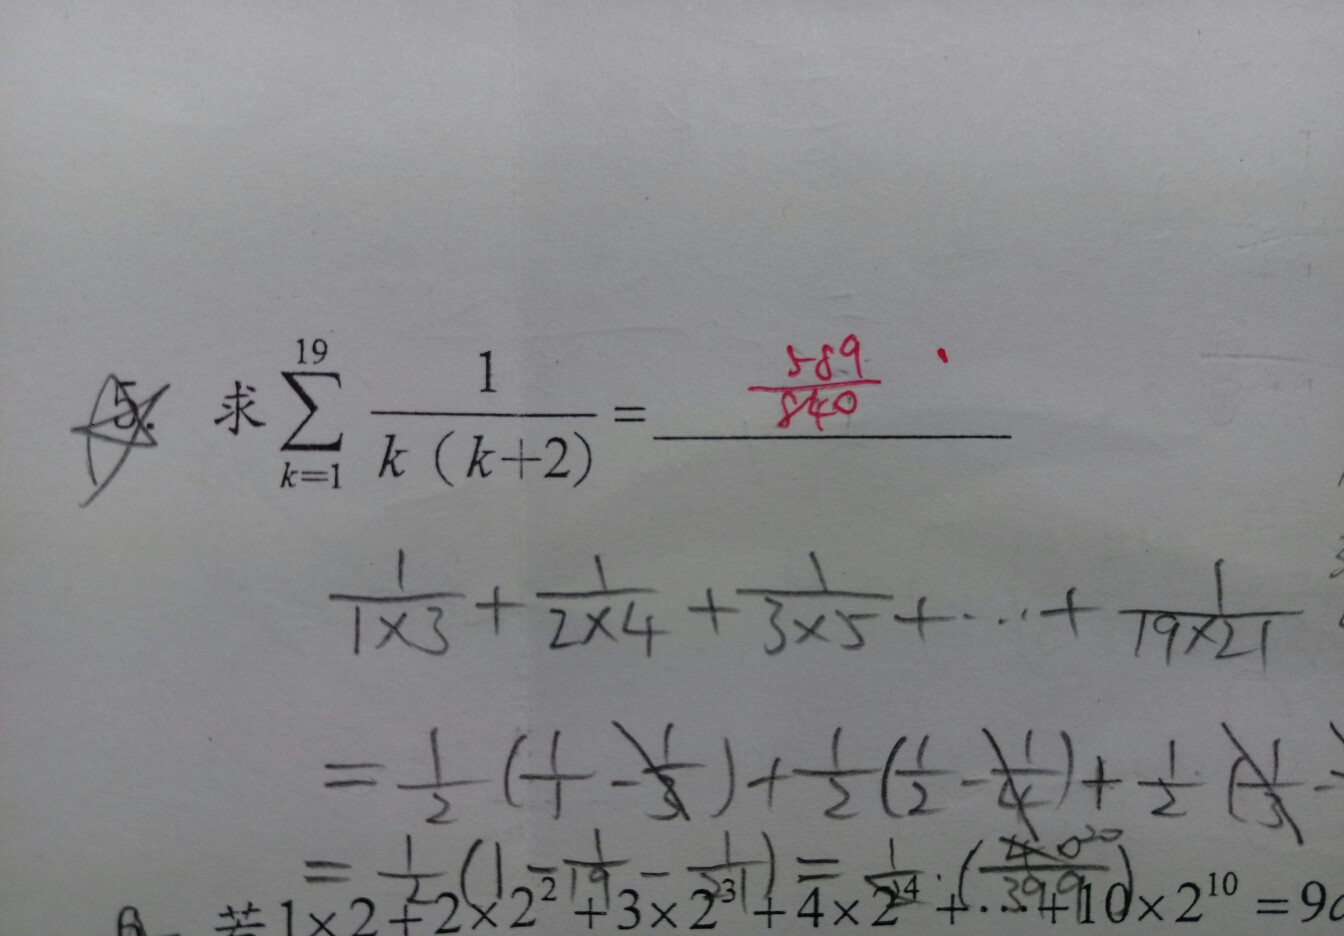 5. 求 \sum_{k=1}^{19} \frac{1}{k（k+2）} = \frac{589}{840}
\frac{1}{1×3} + \frac{1}{2×4} + \frac{1}{3×5} + … + \frac{1}{19×21}
= \frac{1}{2} (\frac{1}{1} - \frac{1}{3}) + \frac{1}{2} (\frac{1}{2} - \frac{1}{4}) + \frac{1}{2} (\frac{1}{3} -
= \frac{1}{2} (1 - \frac{1}{19} - \frac{1}{21}) = \frac{1}{2} · (
6. 若 1×2+2×2^2+3×2^3+4×2^4+…+10×2^{10}=9